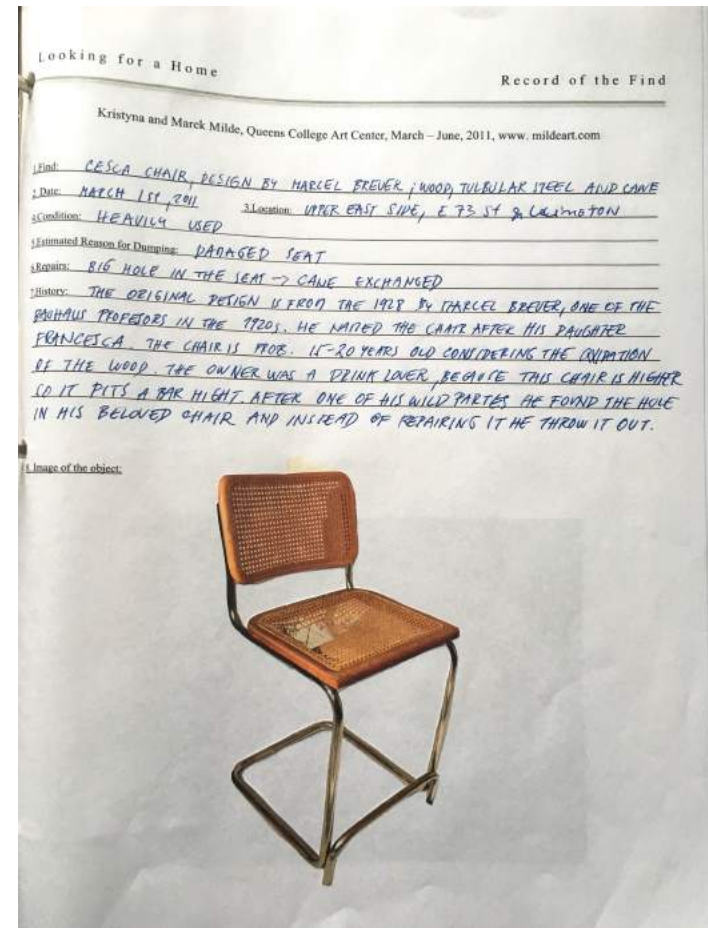 Looking for a Home
Record of the Find
Kristyna and Marek Milde, Queens College Art Center, March – June, 2011, www. mildeart.com
1.Find: CESCA CHAIR, DESIGN BY MARCEL BREUER; WOOD, TULBULAR STEEL AND CANE
2.Date: MARCH 1ST, 2011 3.Location: UPPER EAST SIDE, E 73 St & LEXINGTON
4.Condition: HEAVILY USED
5.Estimated Reason for Dumping: DAMAGED SEAT
6.Repairs: BIG HOLE IN THE SEAT → CANE EXCHANGED
7.History: THE ORIGINAL DESIGN IS FROM THE 1928 By MARCEL BREUER, ONE OF THE
BAUHAUS PROFESORS IN THE 1920s. HE NAMED THE CHAIR AFTER HIS DAUGHTER
FRANCESCA. THE CHAIR IS PROB. 15-20 YEARS OLD CONSIDERING THE
OF THE WOOD. THE OWNER WAS A DRINK LOVER, BECAUSE THIS CHAIR IS HIGHER
SO IT FITS A BAR HIGHT. AFTER ONE OF HIS WILD PARTES HE FOUND THE HOLE
IN HIS BELOVED CHAIR AND INSTEAD OF REPAIRING IT HE THROW IT OUT.
8.Image of the object: